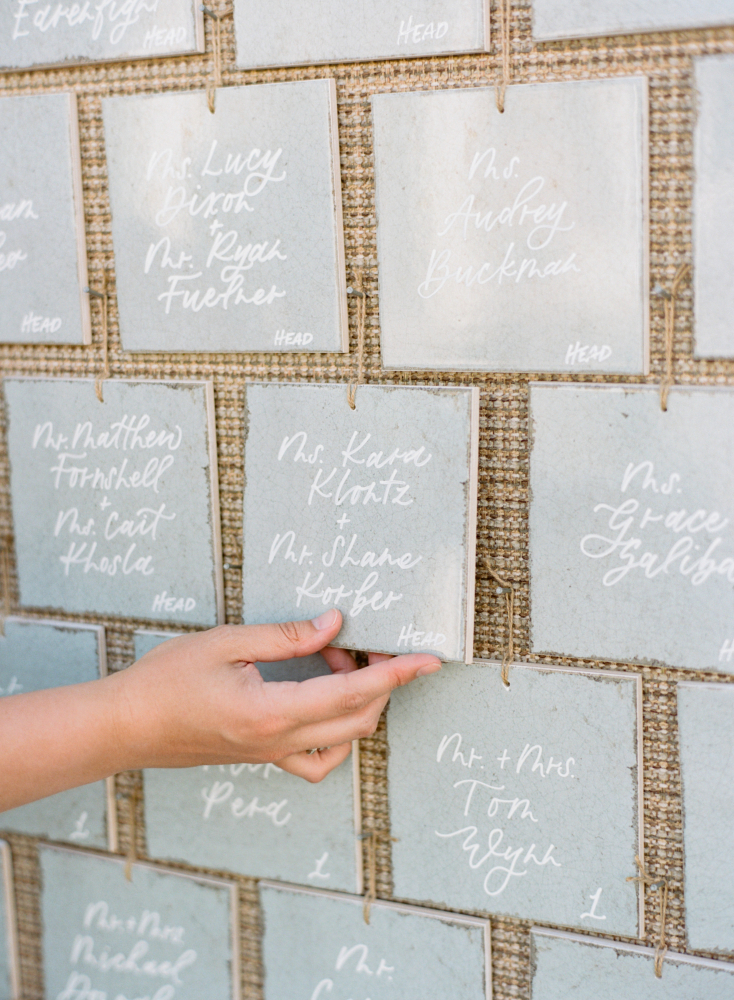 HEAD
HEAD
Ms. Lucy
Dixon
+
Mr. Ryan
Fuelner
HEAD
Ms.
Audrey
Buckman
HEAD
HEAD
Mr. Matthew
Fornshell
+
Ms. Cait
Khosla
HEAD
Ms. Kara
Klontz
+
Mr. Shane
Korber
HEAD
Ms.
Grace
+
Perd
1
Mr. + Mrs.
Tom
Wynn
1
1
Mr. + Mrs.
Michael
Mr.